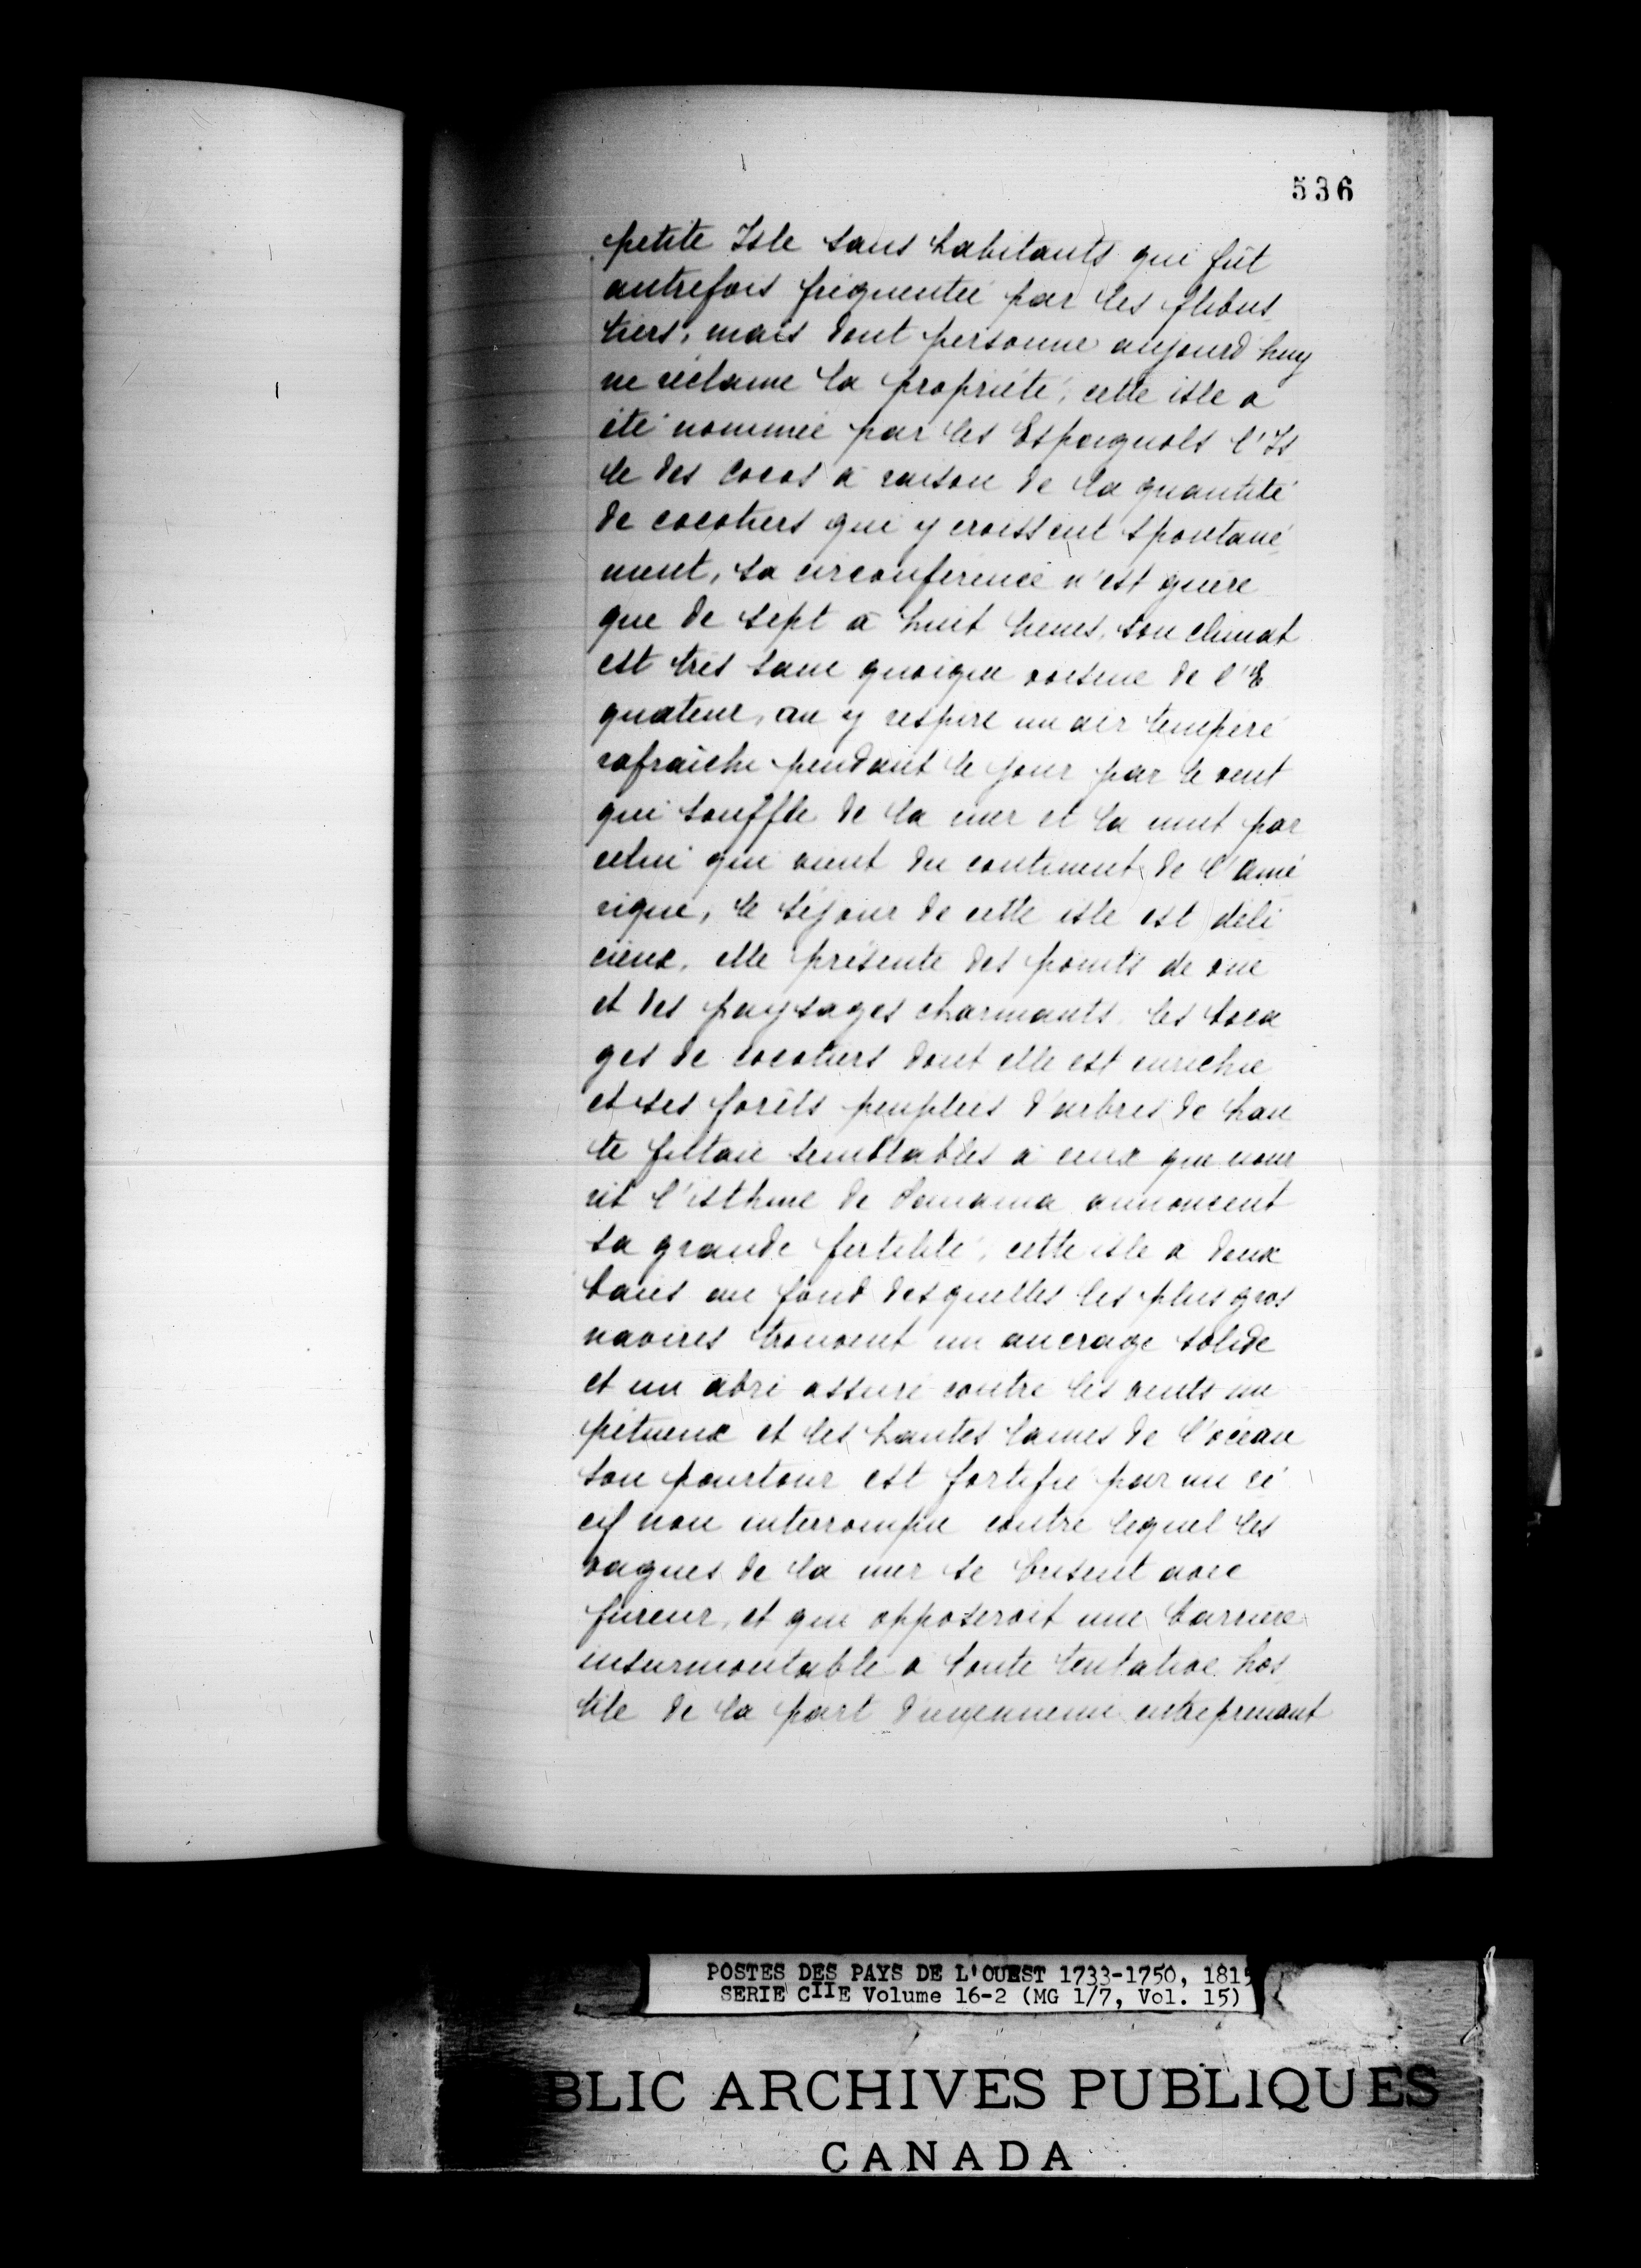 536
petite Isle sans habitants qui fût
autrefois fréquentée par les flibus
tiers, mais dont personne aujourd'huy
ne réclame la propriété, cette isle a
été nommée par les Espagnols l'Is
le des Cocos à raison de la quantité
de cocotiers qui y croissent spontané
ment, sa circonférence n'est guère
que de sept à huit lieues, son climat
est très sain quoique voisine de l'E
quateur, on y respire un air tempéré
rafraichi pendant le jour par le vent
qui souffle de la mer et la nuit par
celui qui vient du continent de l'amé
rique, le séjour de cette isle est déli
cieux, elle présente des points de vue
et des paysages charmants les boca
ges de cocotiers dont elle est enrichie
et ses forêts peuplées d'arbres de hau
te futaie semblables à ceux que nour
rit l'isthme de Panama annoncent
sa grande fertilité, cette isle a deux
baies au fond desquelles les plus gros
navires trouvent un ancrage solide
et un abri assuré contre les vents im
pétueux et les hautes lames de l'océan
son pourtour est fortifié par un ré
cif non interrompu contre lequel les
vagues de la mer se brisent avec
fureur, et qui opposeroit une barrière
insurmontable a toute tentative hos
tile de la part d'un ennemi entreprenant
POSTES DES PAYS DE L'OUEST 1733-1750, 1815
SERIE CIIE Volume 16-2 (MG 1/7, Vol. 15)
BLIC ARCHIVES PUBLIQUES
CANADA